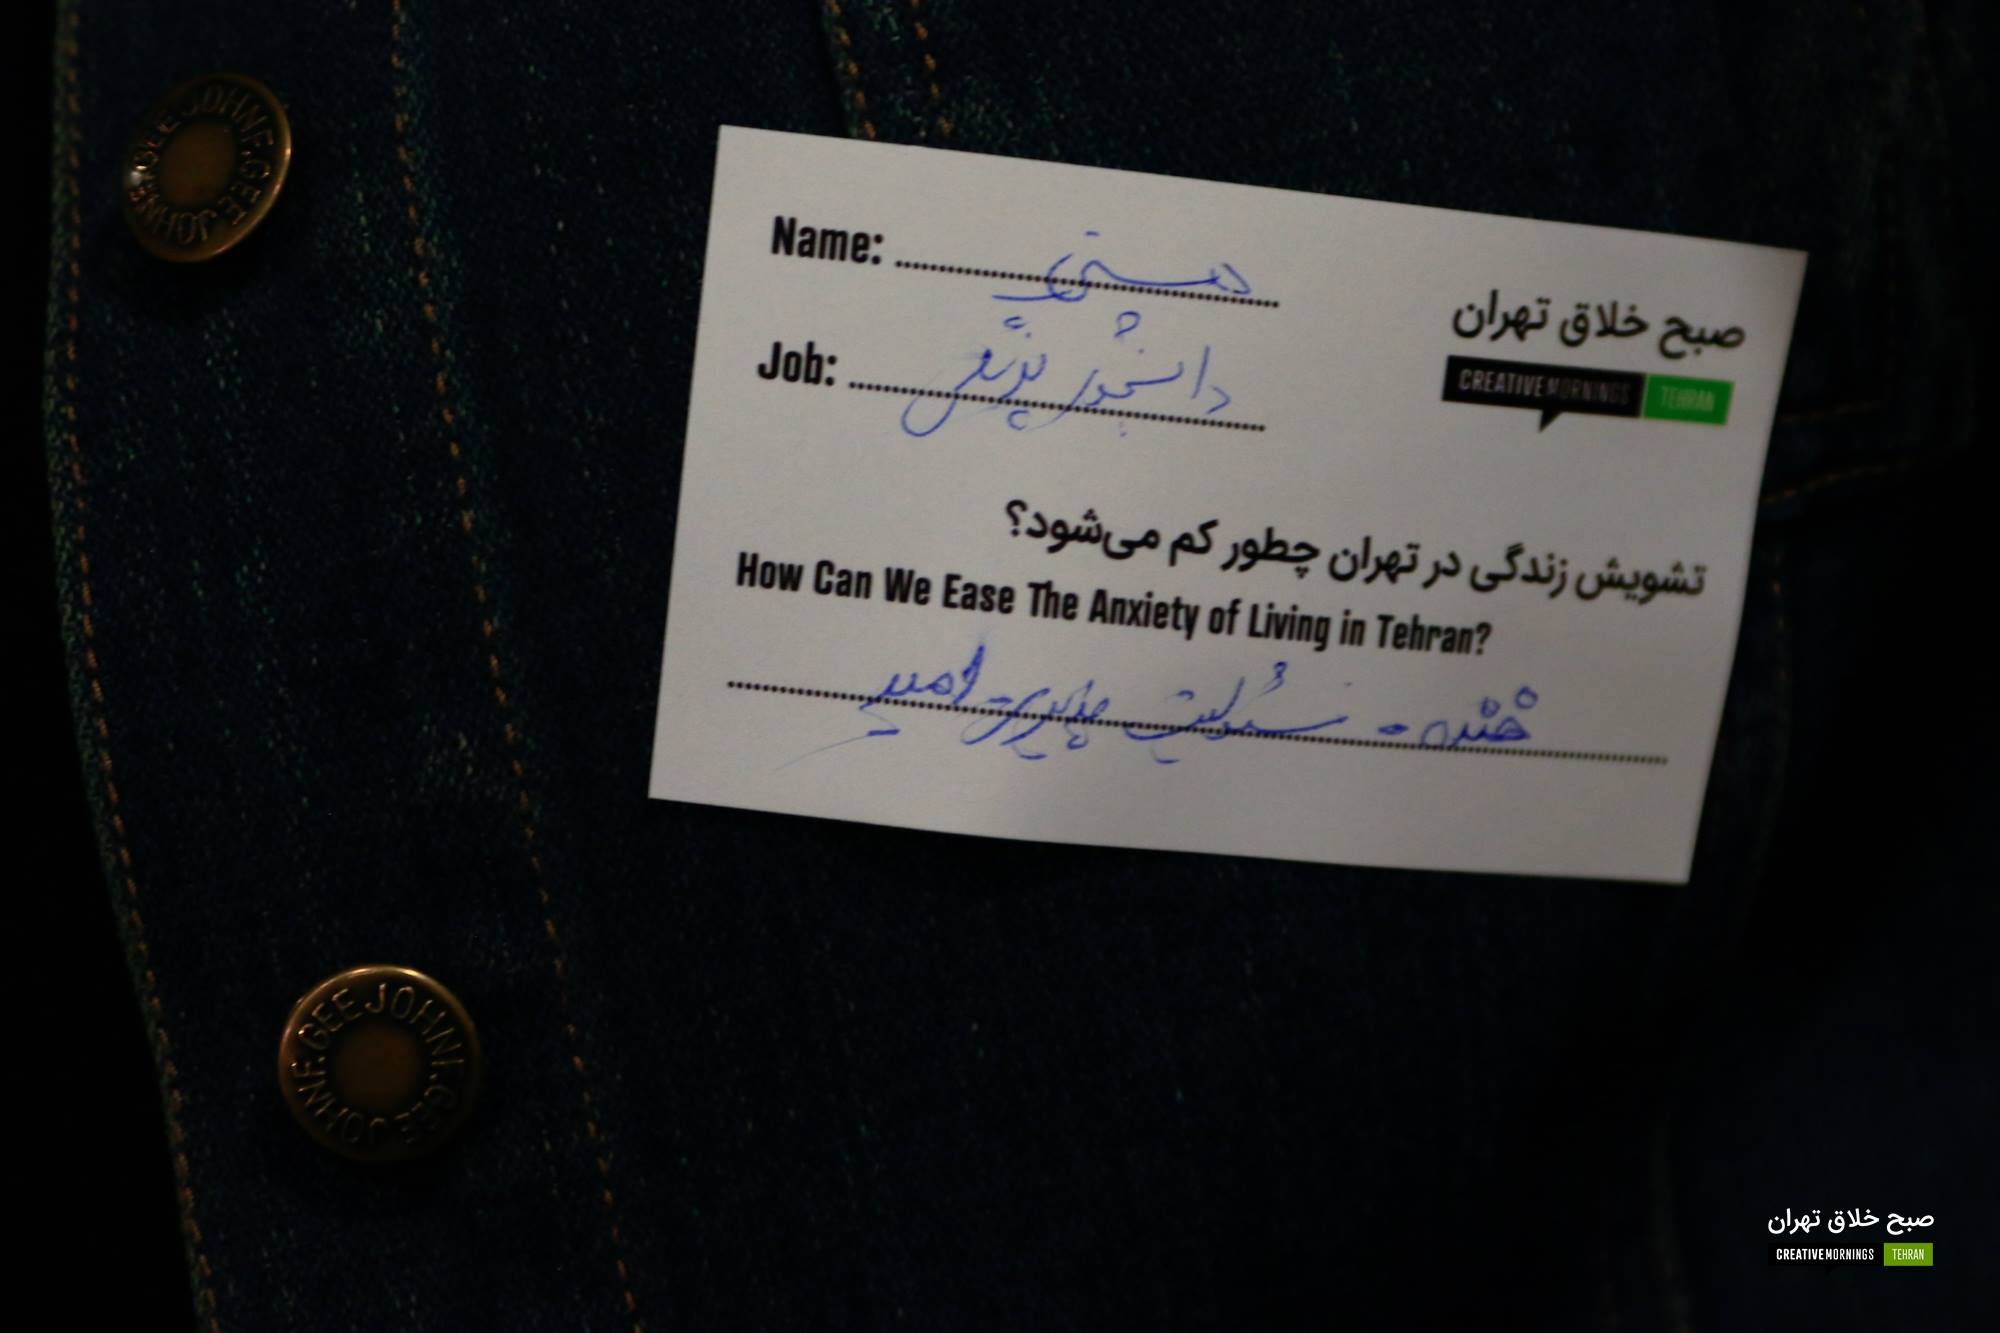 JOHN F. GEE JOHN F. GEE
Name: هستی
Job: دانشجو پزشکی
صبح خلاق تهران
CREATIVEMORNINGS TEHRAN
تشویش زندگی در تهران چطور کم می‌شود؟
How Can We Ease The Anxiety of Living in Tehran?
خنده - مسئولیت پذیری - امید
JOHN F. GEE JOHN F. GEE
صبح خلاق تهران
CREATIVEMORNINGS TEHRAN